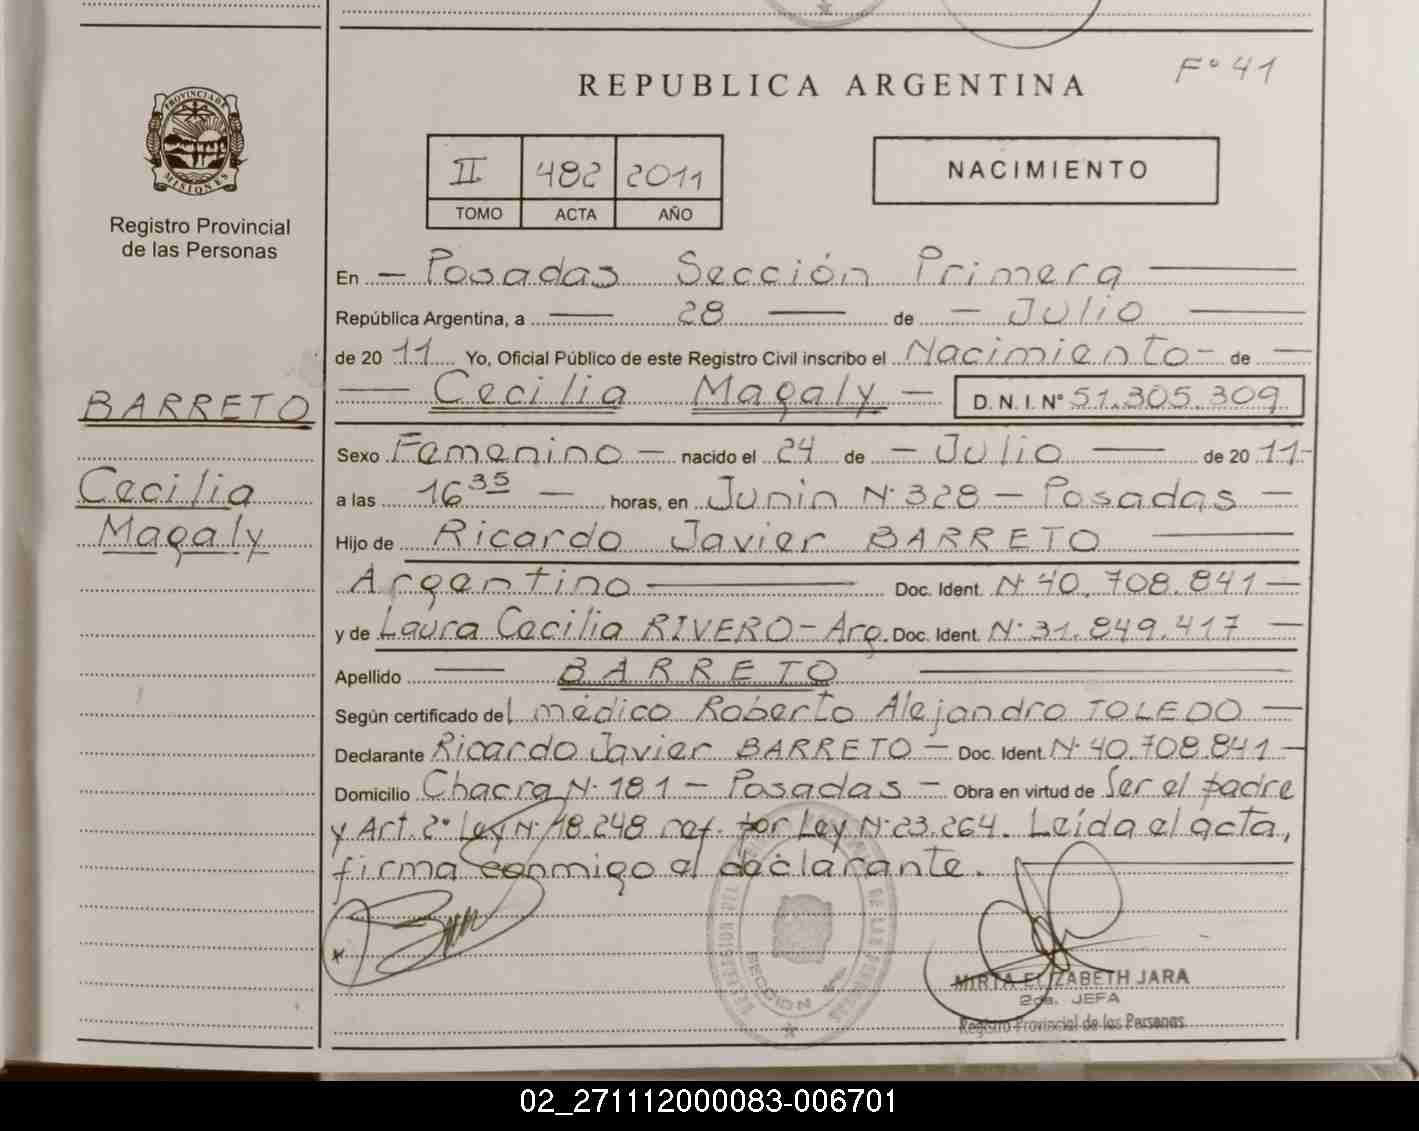 F° 41
REPUBLICA ARGENTINA
PROVINCIA DE
MISIONES
Registro Provincial
de las Personas
II 482 2011
TOMO ACTA AÑO
NACIMIENTO
En — Posadas Sección Primera —
República Argentina, a — 28 — de — Julio —
de 20 11 Yo, Oficial Público de este Registro Civil inscribo el Nacimiento - de —
— Cecilia Magaly — D. N. I. N° 51.305.309
BARRETO
Cecilia
Magaly
Sexo Femenino — nacido el 24 de — Julio — de 20 11-
a las 16 35 — horas, en Junin N° 328 — Posadas —
Hijo de Ricardo Javier BARRETO —
Argentino — Doc. Ident. N° 40.708.841 —
y de Laura Cecilia RIVERO - Arg. Doc. Ident. N° 31.849.417 —
Apellido — BARRETO —
Según certificado del médico Roberto Alejandro TOLEDO —
Declarante Ricardo Javier BARRETO — Doc. Ident. N° 40.708.841 —
Domicilio Chacra N° 181 — Posadas — Obra en virtud de Ser el padre
y Art. 2° Ley N° 18.248 ref. por Ley N° 23.264. Leída el acta,
firma conmigo el declarante. —
MIRTA ELIZABETH JARA
2da. JEFA
Registro Provincial de las Personas
02_271112000083-006701